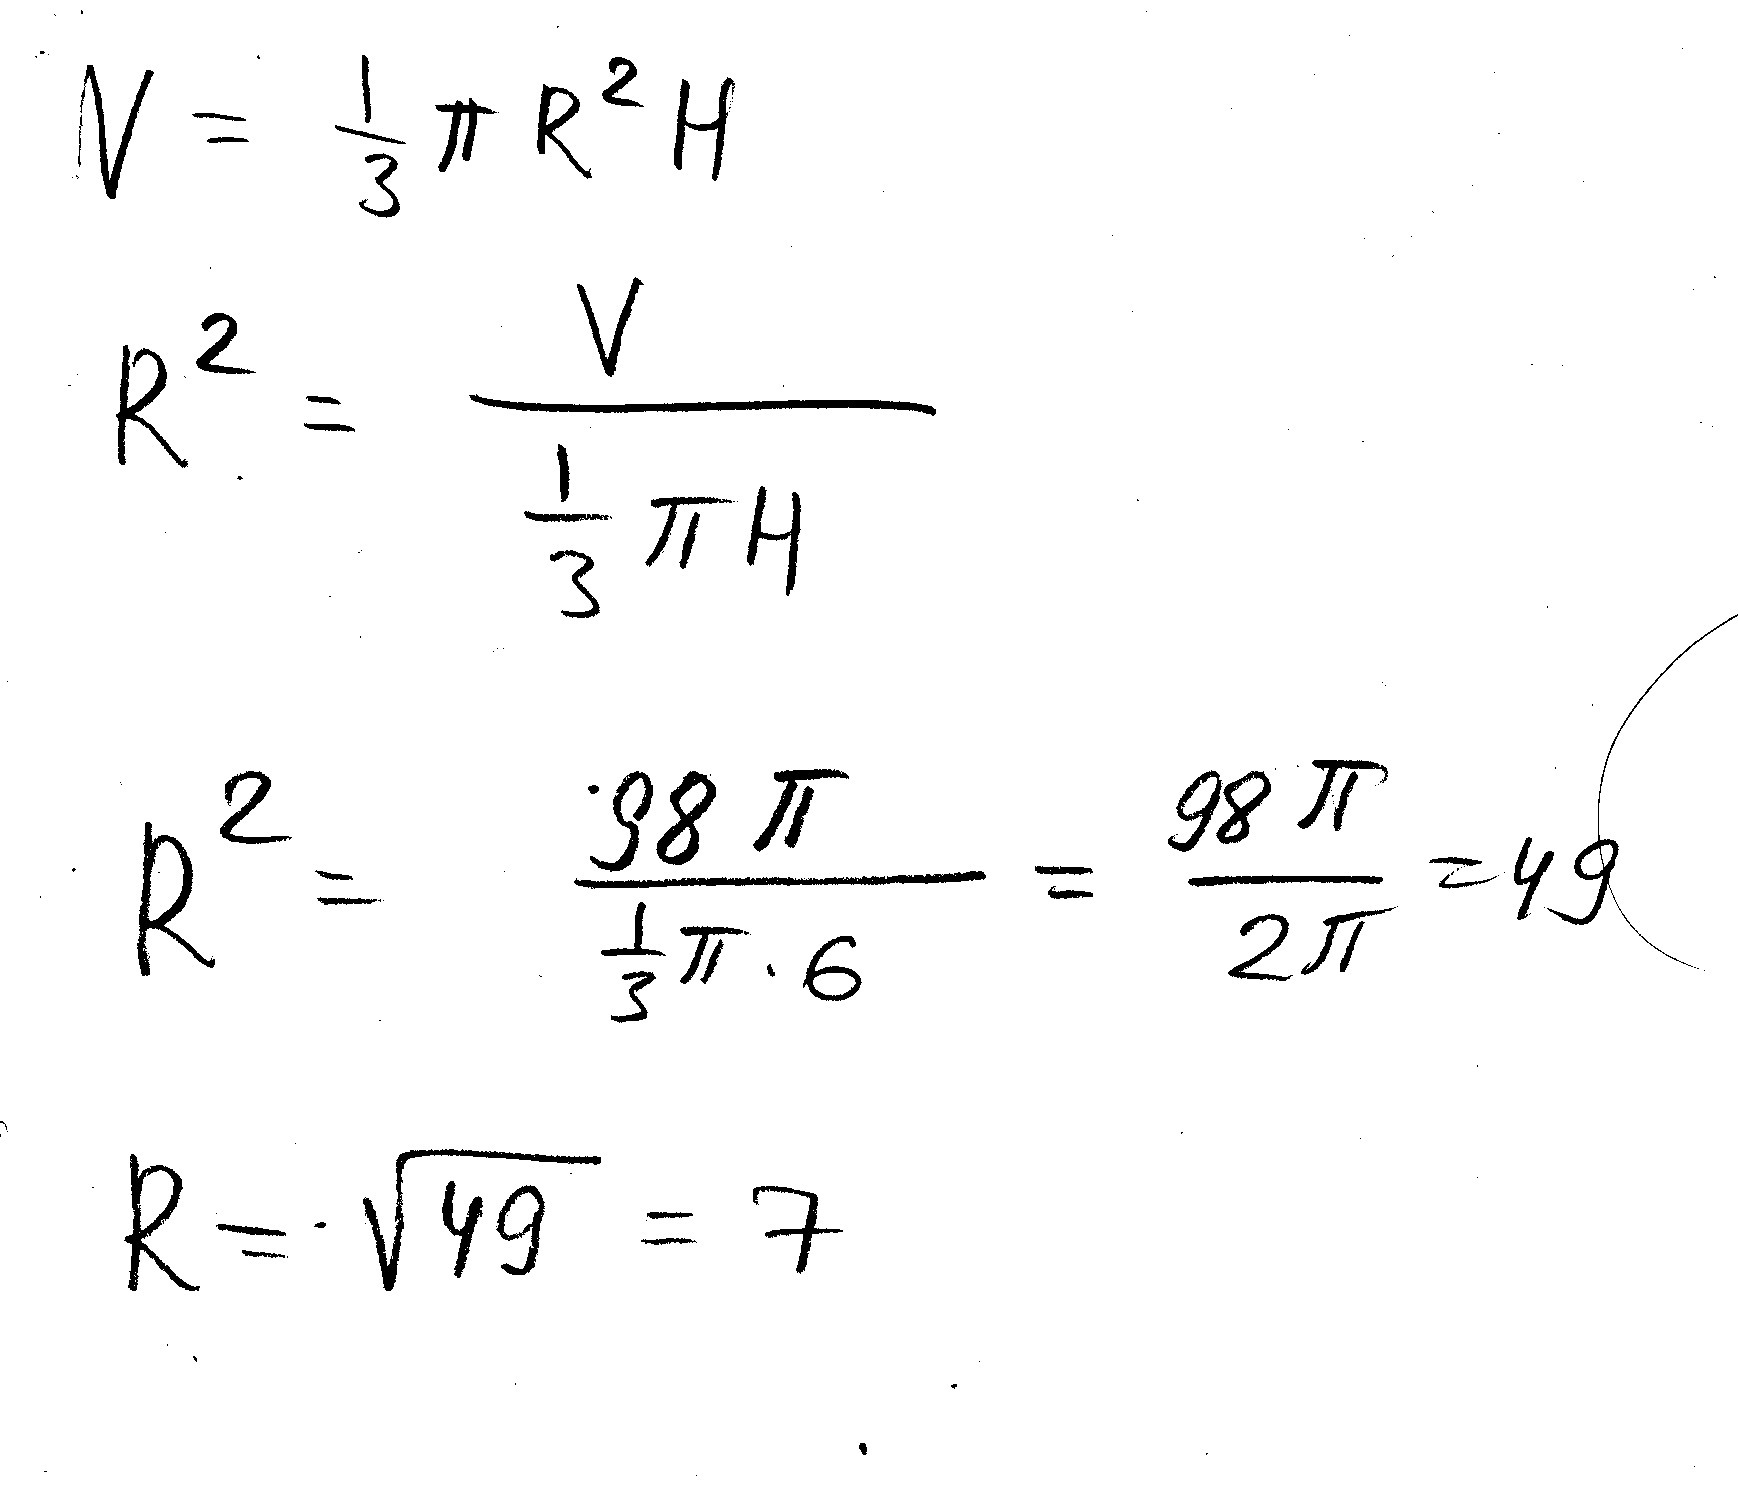 V = 1/3 π R² H
R² = V / (1/3 π H)
R² = 98 π / (1/3 π · 6) = 98 π / 2 π = 49
R = √49 = 7